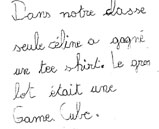 Dans notre classe
seule céline a gagné
un tee shirt. Le gros
lot était une
Game Cube.